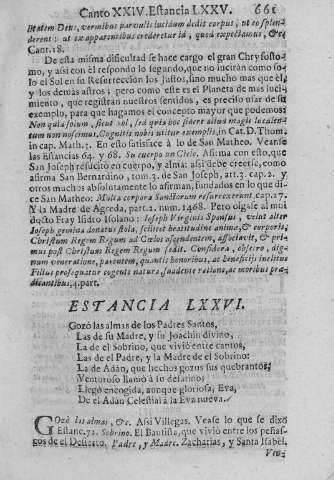 Canto XXIV. Estancia LXXV. 661
Itidem Deus, vermibus parvulis lucidum dedit corpus, ut resplen-
derent: ut ex apparentibus crederetur id, quod expectamus, &c.
Cant. 18.
De esta misma dificultad se hace cargo el gran Chrysosto-
mo, y asi con èl respondo lo segundo, que no lucirán como so-
lo el Sol en su Resurreccion los Justos, sino mucho mas que èl,
y los demàs astros; pero como este es el Planeta de mas luci-
miento, que registran nuestros sentidos, es preciso usar de su
exemplo, para que hagamos el concepto mayor que podemos
Non quia solum, sicut sol, sed quia hoc sidere aliud magis luculen-
tum non noscimus. Cognitis nobis utitur exemplis, in Cat. D. Thom.
in cap. Math. 3. En esto satisface à lo de San Matheo. Veanse
las Estancias 64. y 68. Su cuerpo un Cielo. Afirma con esto, que
San Joseph resucitò en cuerpo, y alma; asi debe creerse, como
afirma San Bernardino, tom. 3. de San Joseph, art. 3. cap. 2. y
otros muchos absolutamente lo afirman, fundados en lo que di-
ce San Matheo: Multa corpora Sanctorum resurrexerunt cap. 27.
Y la Madre de Agreda, part. 2. num. 1468. Pero oigase al mui
docto Fray Isidro Isolano: Joseph Virginis Sponsus, velut alter
Joseph gemina donatus stola, scilicet beatitudine animæ, & corporis,
Christum Regem Regum ad Cœlos ascendentem, associavit, & pri-
mus post Christum Regem Regum sedit. Considera, obsecro, dig-
num veneratione, parentem, quantis honoribus, ac beneficijs inclitus
Filius prosequatur cogente natura, suadente ratione, ac moribus præ-
dicantibus, 4. part.
ESTANCIA LXXVI.
Gozò las almas de los Padres Santos,
Las de su Madre, y su Joachin divino,
La de el Sobrino, que vivió entre cantos,
Las de el Padre, y la Madre de el Sobrino:
La de Adàn, que hechos gozos sus quebrantos
Venturoso llamò à su desatino:
Llegò enengida, aunque gloriosa, Eva,
De el Adàn Celestial à la Eva nueva.
Gozò las almas, &c. Asi Villegas. Vease lo que se dixo
Estanc. 72. Sobrino. El Bautista, que vivió entre los peñas-
gos de el Desierto. Padre, y Madre. Zacharias, y Santa Isabèl.